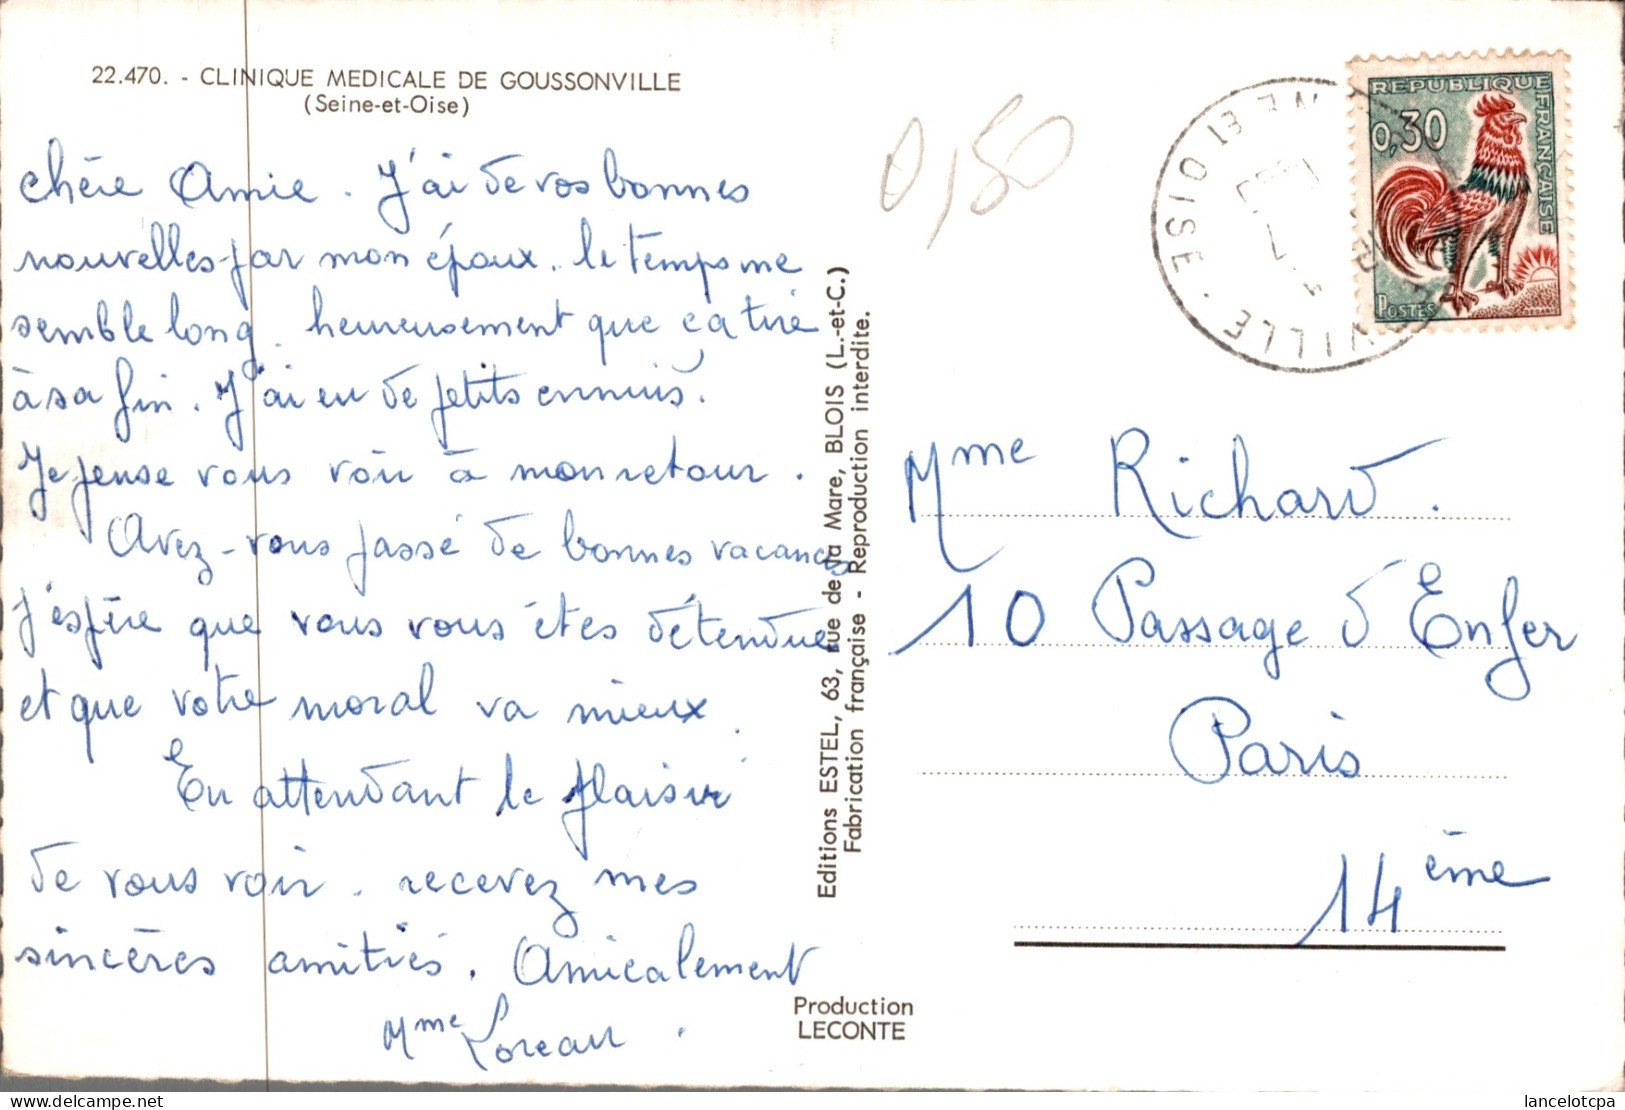 22.470. - CLINIQUE MEDICALE DE GOUSSONVILLE
(Seine-et-Oise)
chère Amie. J'ai de vos bonnes
nouvelles par mon époux. le temps me
semble long. heureusement que ça tire
à sa fin. J'ai eu de petits ennuis.
Je pense vous voir à mon retour.
Avez-vous passé de bonnes vacances
j'espère que vous vous êtes détendue
et que votre moral va mieux.
En attendant le plaisir
de vous voir. recevez mes
sincères amitiés. Amicalement
Mme Loreau.
Editions ESTEL, 63, rue de la Mare, BLOIS (L.-et-C.)
Fabrication française - Reproduction interdite.
Production
LECONTE
0,50
REPUBLIQUE FRANÇAISE
0,30
POSTES
DECARIS
VILLE · ET OISE
Mme Richard.
10 Passage d'Enfer
Paris
14ème
delcampe.net
lancelotcpa